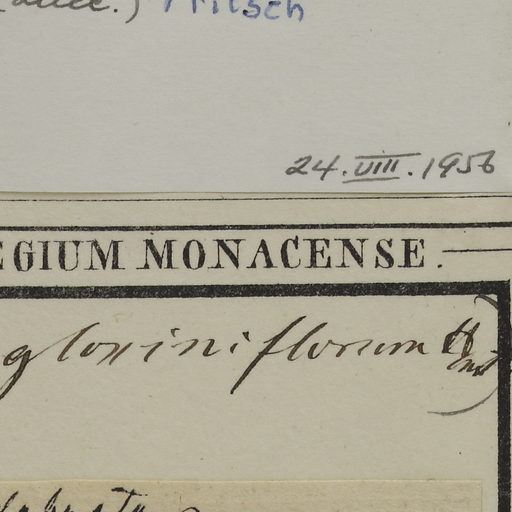 Fritsch
24.VIII.1956
EGIUM MONACENSE.
gloxiniflorum